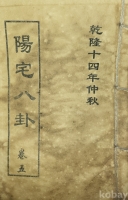 乾隆十四年仲秋
陽宅八卦
卷五
kobay